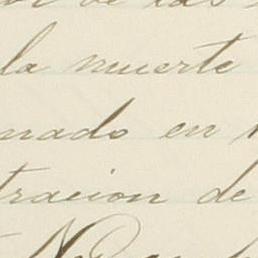 de las
la muerte
nado en
tracion de